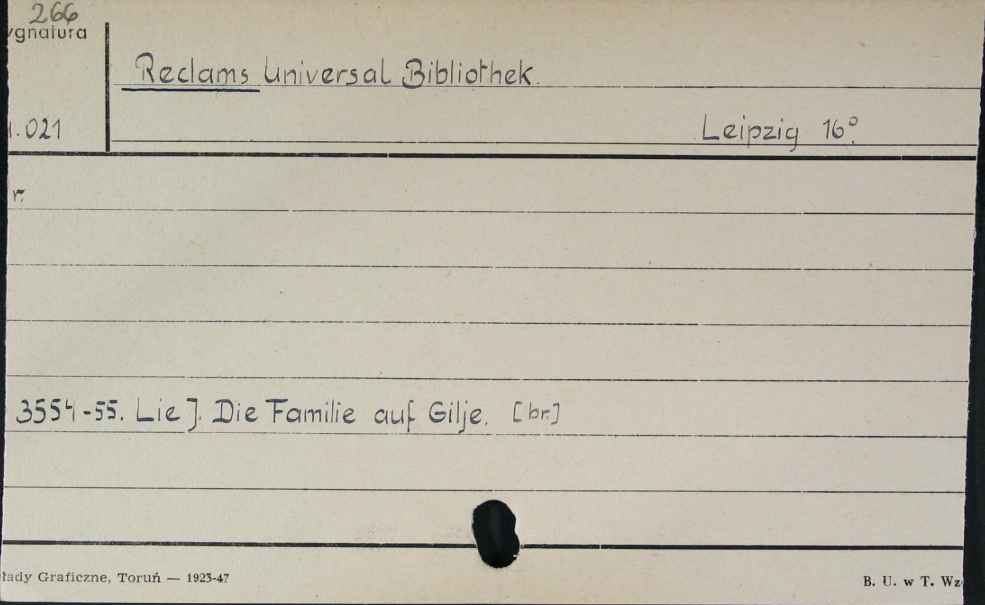 266
ygnatura
Reclams Universal Bibliothek.
1.021
Leipzig 16°.
r.
3554-55. Lie J. Die Familie auf Gilje. [br.]
łady Graficzne, Toruń — 1923-47
B. U. w T. Wz